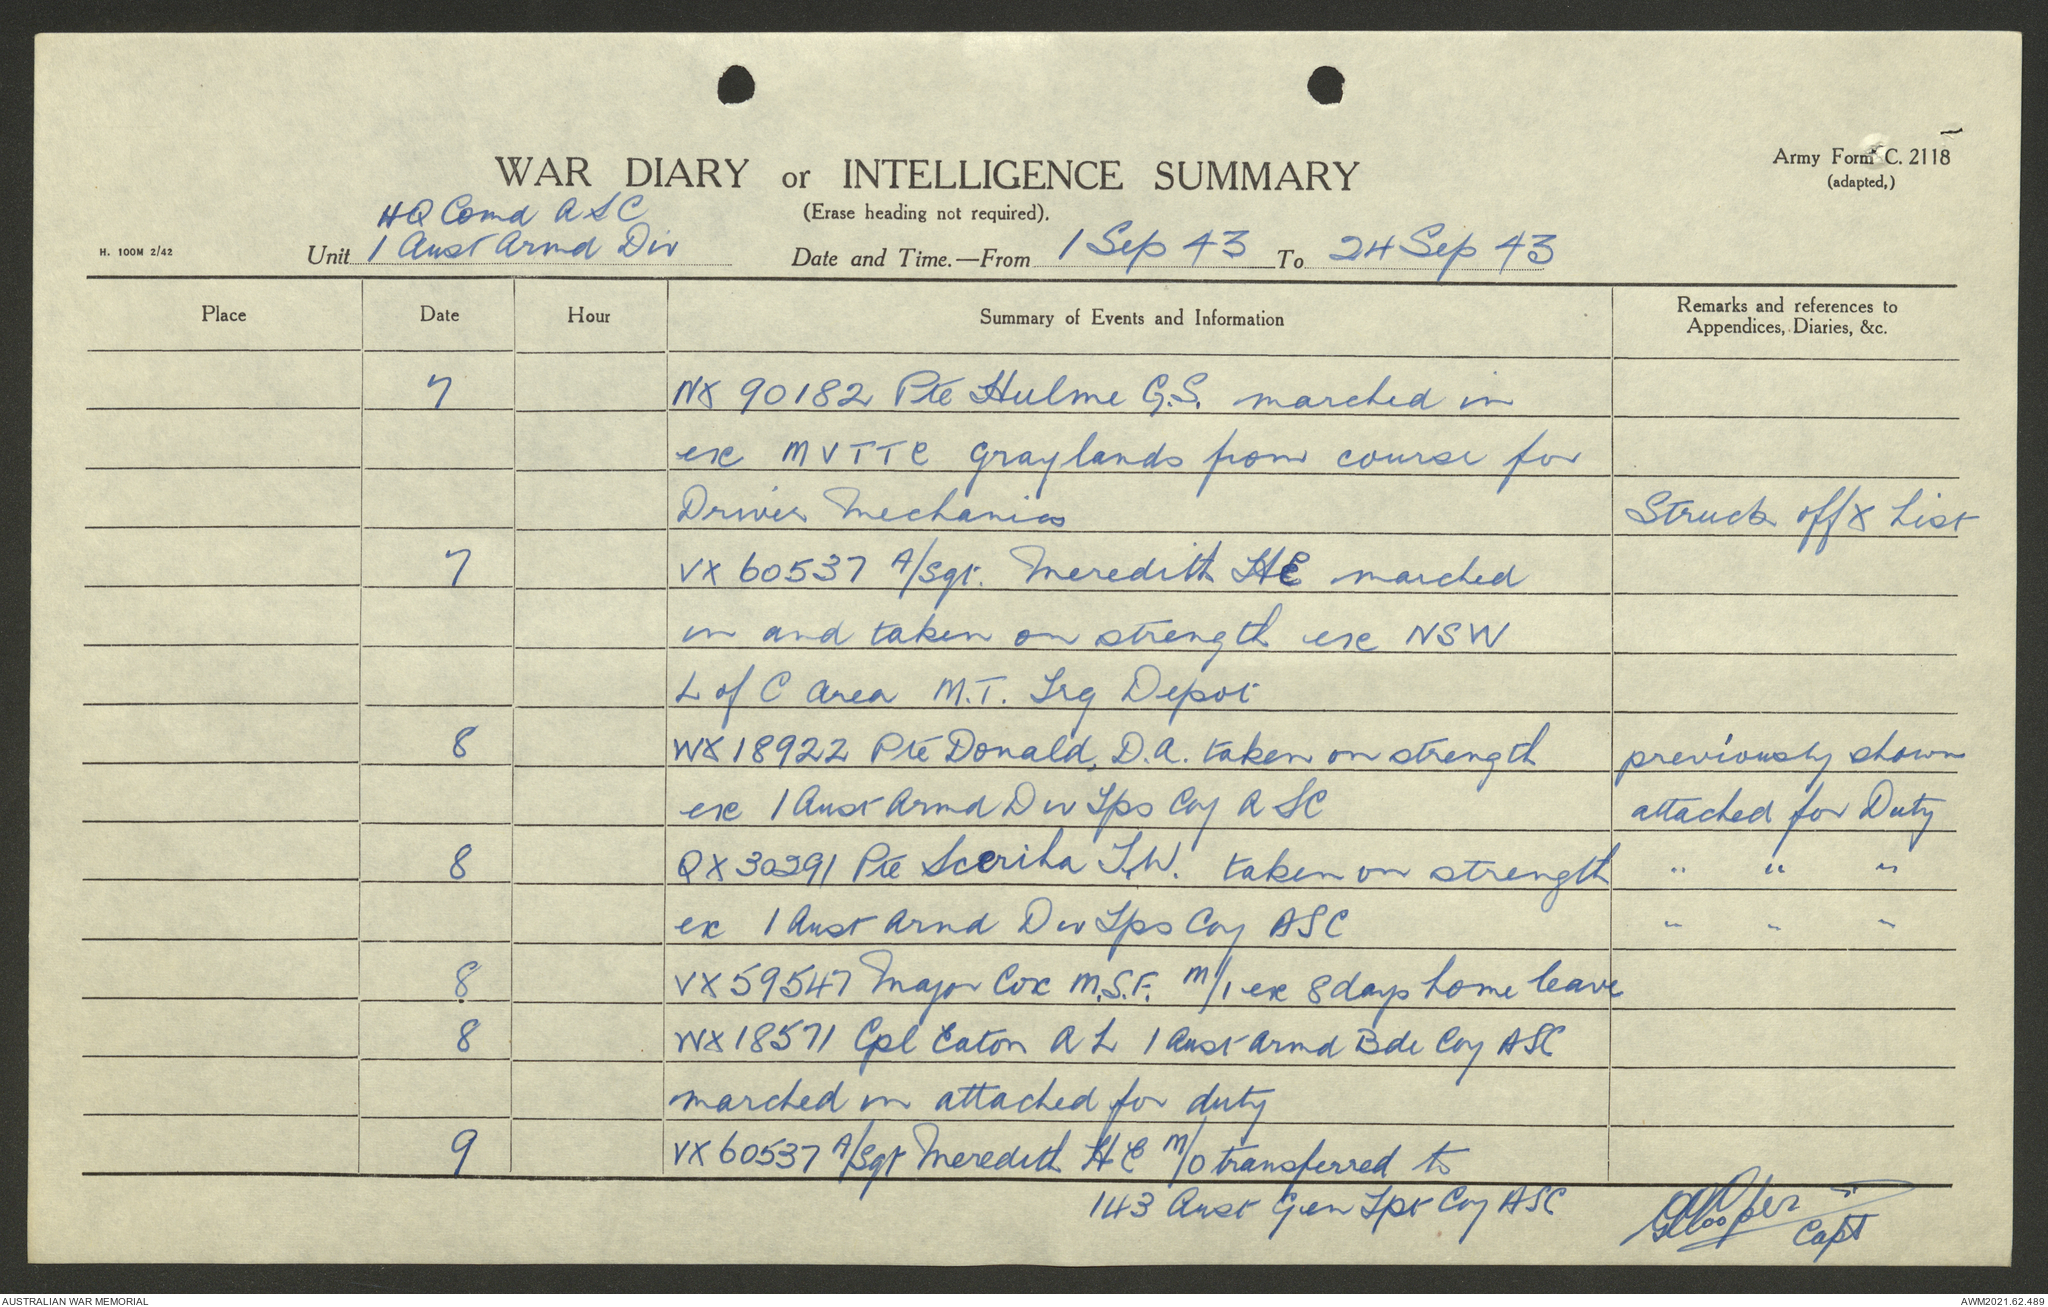 Army Form C. 2118
(adapted,)
WAR DIARY or INTELLIGENCE SUMMARY
(Erase heading not required).
H. 100M 2/42
HQ Comd ASC
Unit 1 Aust Armd Div
Date and Time.—From 1 Sep 43 To 24 Sep 43
Place Date Hour Summary of Events and Information Remarks and references to
Appendices, Diaries, &c.
7 NX 90182 Pte Hulme G.S. marched in
ex MVTTC Graylands from course for
Driver Mechanics Struck off X List
7 VX 60537 A/Sgt. Meredith HE marched
in and taken on strength ex NSW
L of C area M.T. Trg Depot
8 WX 18922 Pte Donald, D.A. taken on strength previously shown
ex 1 Aust Armd Div Tps Coy ASC attached for Duty
8 QX 30291 Pte T.W. taken on strength " " "
ex 1 Aust Armd Div Tps Coy ASC " " "
8 VX 59547 Major Cox M.S.F. M/I ex 8 days home leave
8 WX 18571 Cpl Eaton A L 1 Aust Armd Bde Coy ASC
marched in attached for duty
9 VX 60537 A/Sgt Meredith HE M/O transferred to
143 Aust Gen Tpt Coy ASC
Capt
AUSTRALIAN WAR MEMORIAL
AWM2021.62.489